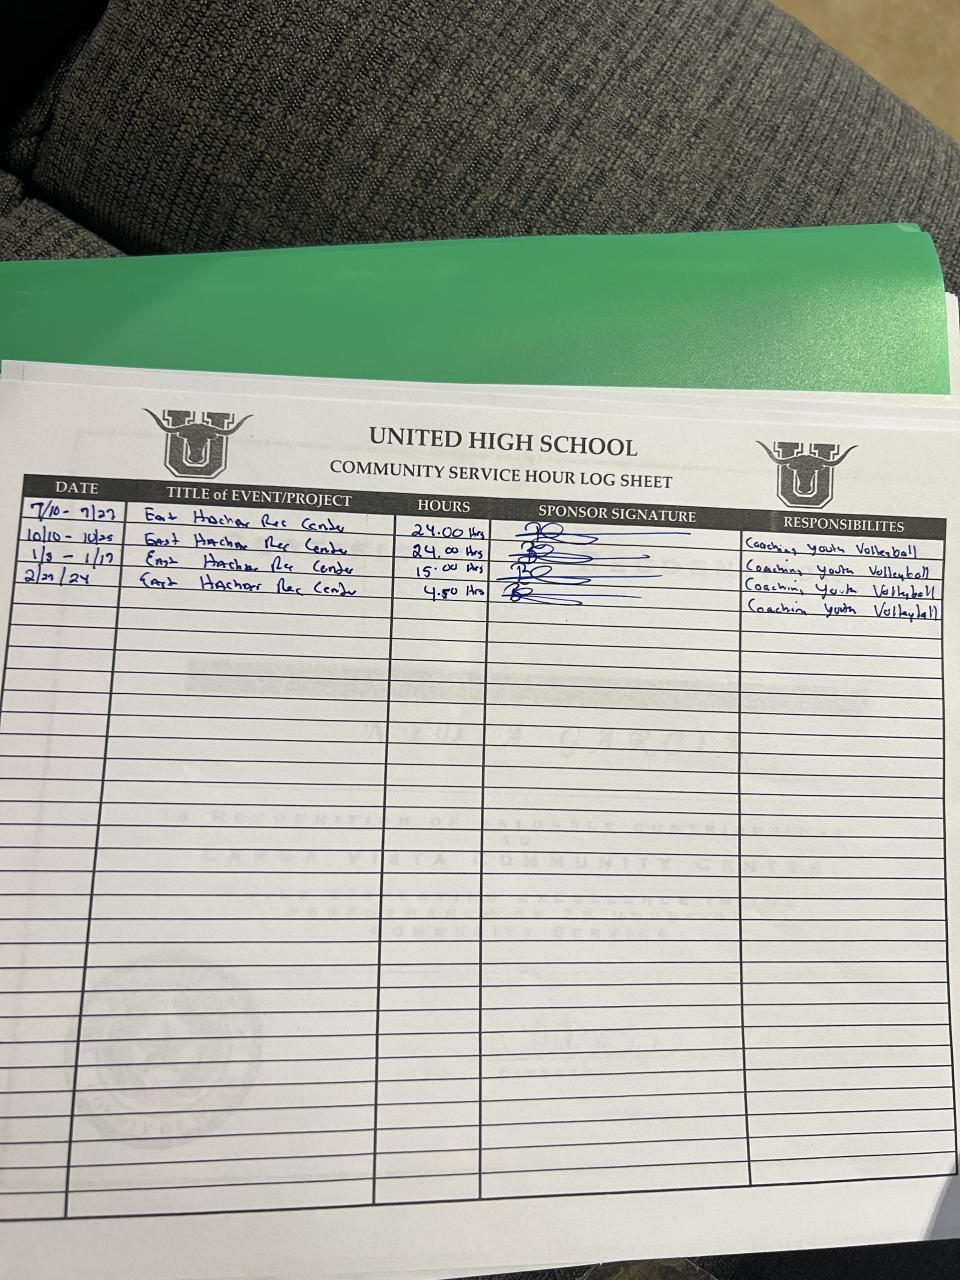 UNITED HIGH SCHOOL
COMMUNITY SERVICE HOUR LOG SHEET
DATE TITLE of EVENT/PROJECT HOURS SPONSOR SIGNATURE RESPONSIBILITES
7/10 - 7/27 East Hachar Rec Center 24.00 Hrs Coaching youth Volleyball
10/10 - 10/25 East Hachar Rec Center 24.00 Hrs Coaching youth Volleyball
1/8 - 1/17 East Hachar Rec Center 15.00 Hrs Coaching youth Volleyball
2/21/24 East Hachar Rec Center 4.50 Hrs Coaching youth Volleyball
RECOGNITION OF VALUABLE CONTRIBUTIONS
TO
LARGA VISTA COMMUNITY CENTER
COMMUNITY SERVICE